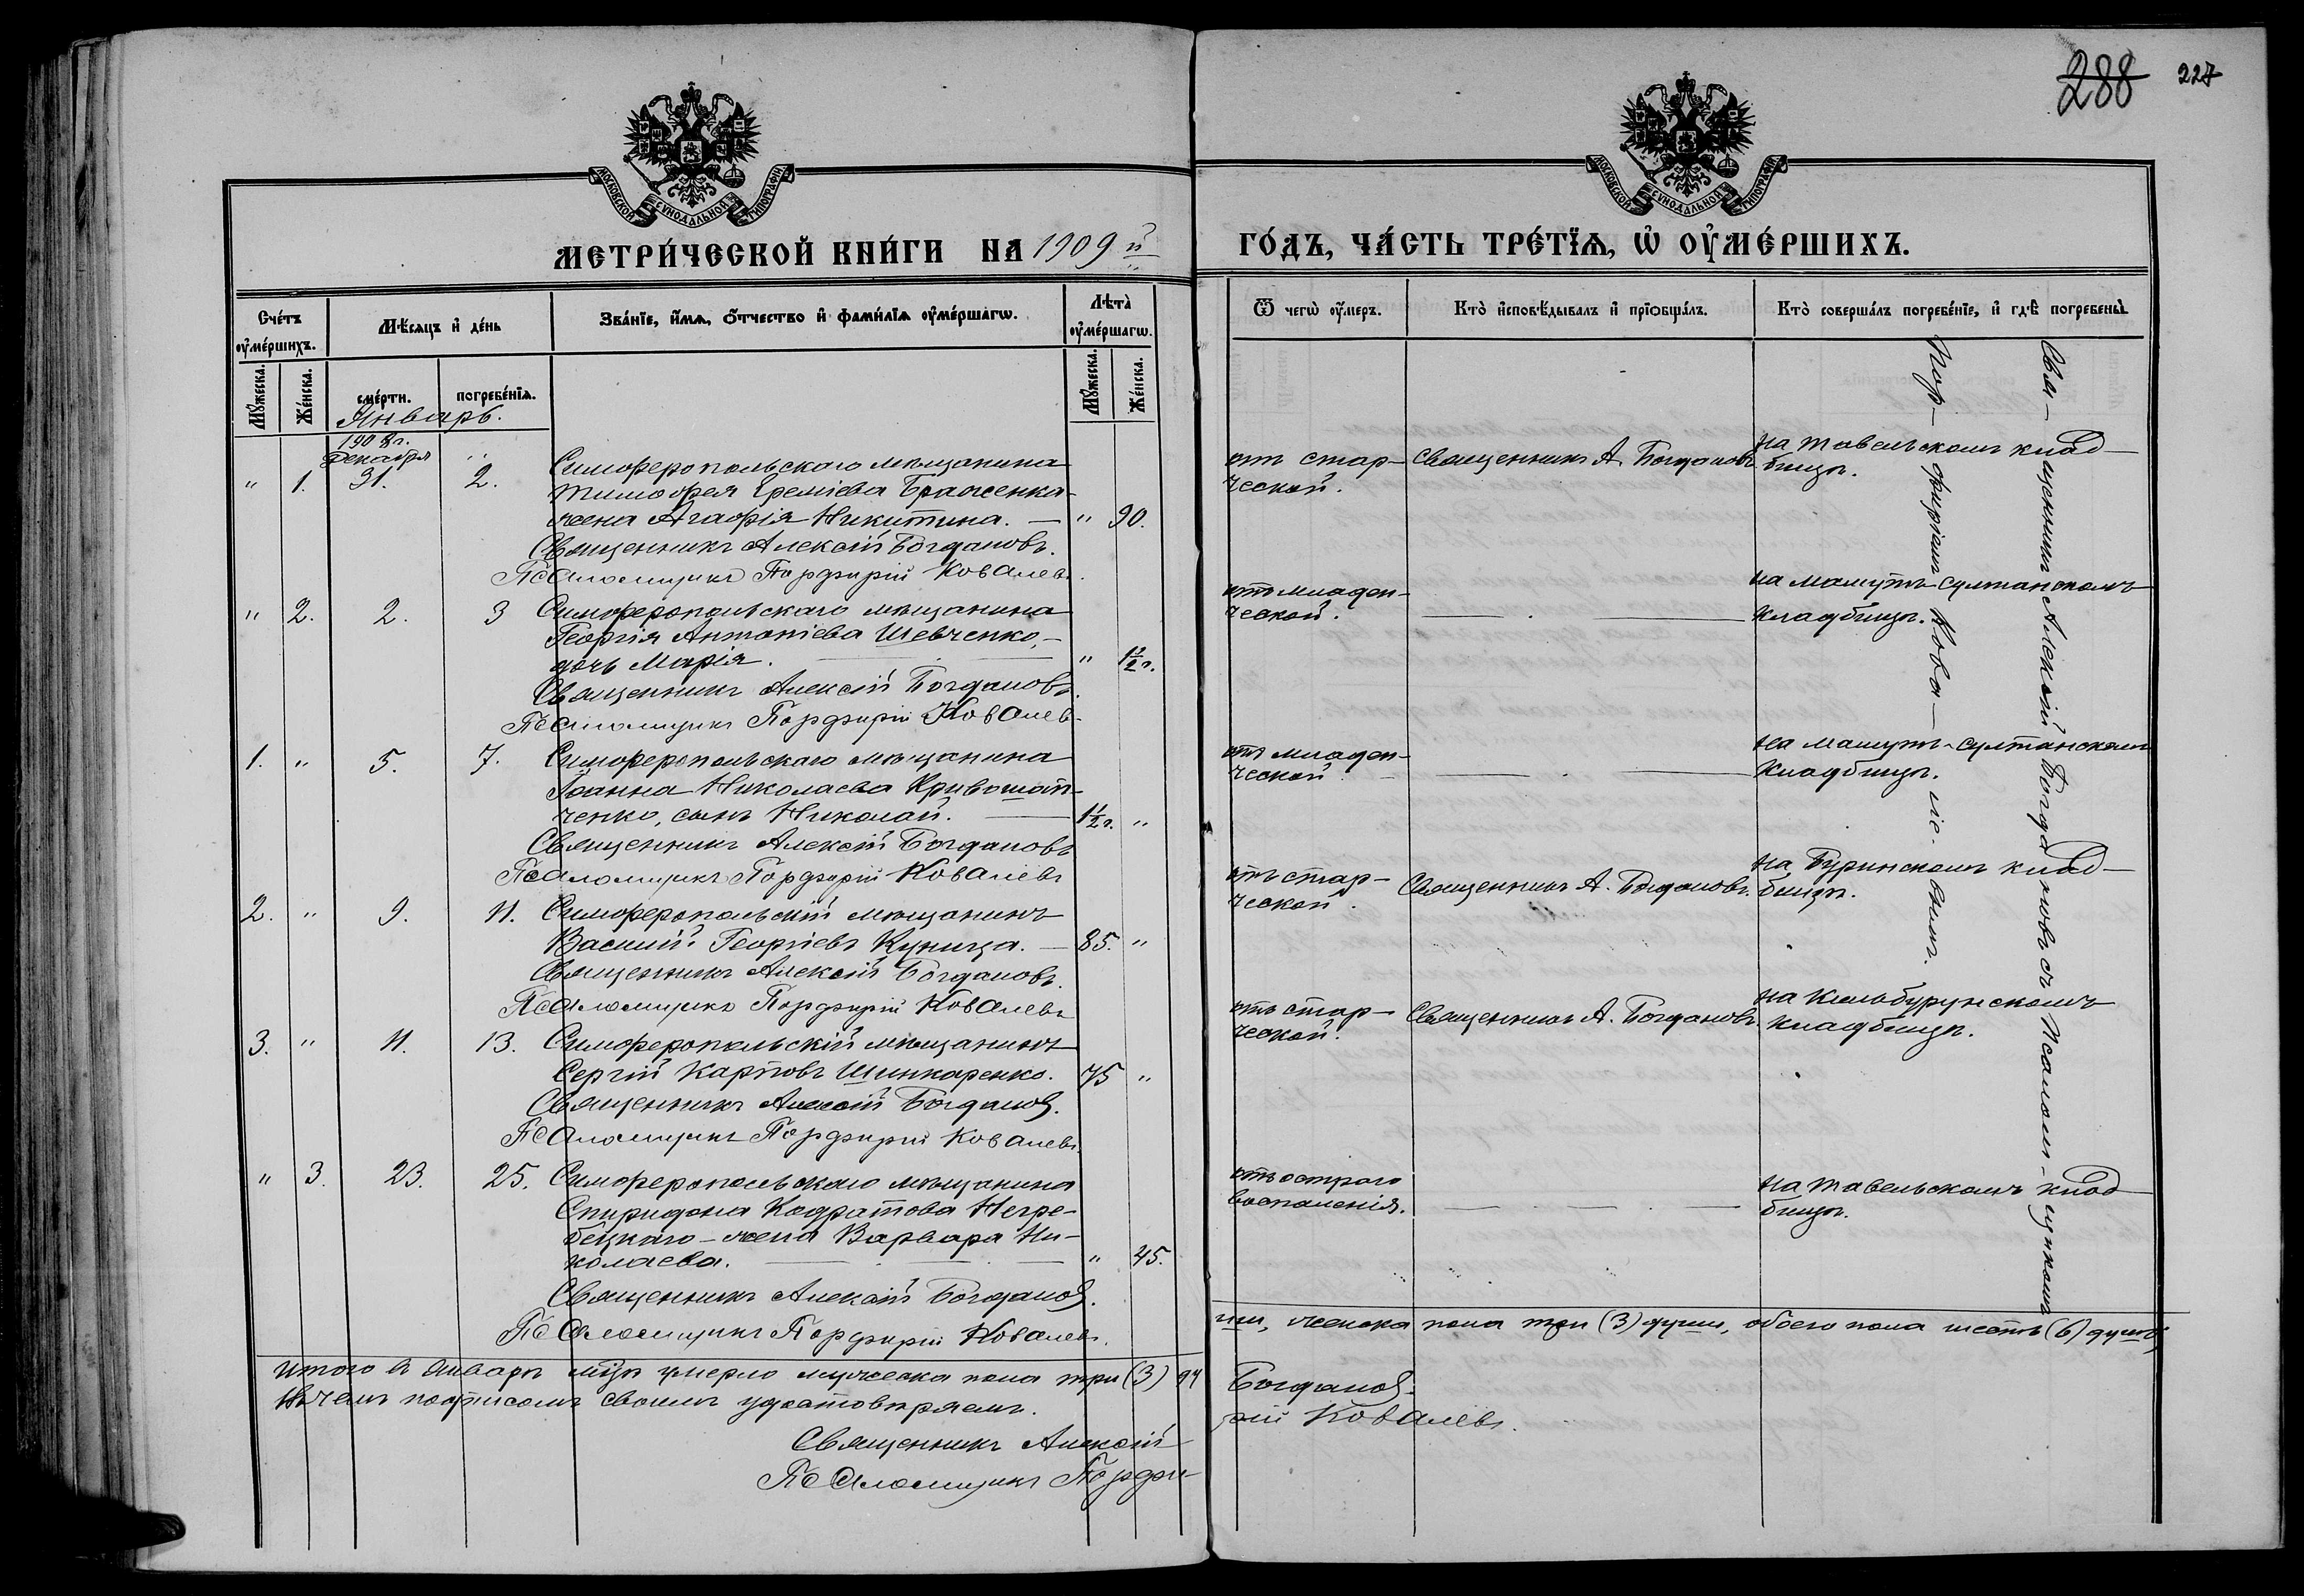 288 227
МОСКОВСКОЙ СѴНОДАЛЬНОЙ ТИПОГРАФІИ
МОСКОВСКОЙ СѴНОДАЛЬНОЙ ТИПОГРАФІИ
МЕТРИ́ЧЕСКОЙ КНИ́ГИ НА 1909 й
ГО́ДЪ, ЧА́СТЬ ТРЕ́ТЇѦ, Ѡ҆ ОУ҆МЕ́РШИХЪ.
Сче́тъ оу҆ме́ршихъ.
Мѣ́сѧцъ и҆ де́нь
Зва́нїе, и҆́мѧ, ѻ҆́тчество и҆ фами́лїѧ оу҆ме́ршагѡ.
Лѣ́та оу҆ме́ршагѡ.
Ѿ чегѡ̀ оу҆́меръ.
Кто̀ и҆сповѣ́дывалъ и҆ прїѡбща́лъ.
Кто̀ соверша́лъ погребе́нїе, и҆ гдѣ̀ погребены̀.
Мꙋ́жеска.
Же́нска.
сме́рти.
погребе́нїѧ.
Мꙋ́жеска.
Же́нска.
Январь.
1908 г.
Декабря
" 1. 31. 2. Симферопольскаго мѣщанина
Тимофея Еремiева Браженка
жена Агафiя Никитина. — " 90.
Священникъ Алексiй Богдановъ.
Псаломщикъ Порфирiй Ковалевъ.
отъ старческой.
Священникъ А. Богдановъ
на Тавельскомъ кладбищѣ.
" 2. 2. 3 Симферопольскаго мѣщанина
Георгiя Антонiева Шевченко,
дочь Марiя. — " 1½ г.
Священникъ Алексiй Богдановъ.
Псаломщикъ Порфирiй Ковалевъ
отъ младенческой.
на Мамутъ-Султанскомъ
кладбищѣ.
1. " 5. 7. Симферопольскаго мѣщанина
Iоанна Николаева Кривошап-
ченко, сынъ Николай. — 1½ г. "
Священникъ Алексiй Богдановъ
Псаломщикъ Порфирiй Ковалевъ
отъ младенческой.
на Мамутъ-Султанскомъ
кладбищѣ.
2. " 9. 11. Симферопольскiй мѣщанинъ
Василiй Георгiевъ Куница. — 85. "
Священникъ Алексiй Богдановъ.
Псаломщикъ Порфирiй Ковалевъ
отъ старческой.
Священникъ А. Богдановъ.
на Буринскомъ кладбищѣ.
3. " 11. 13. Симферопольскiй мѣщанинъ
Сергiй Карповъ Шинкаренко. 75 "
Священникъ Алексiй Богдановъ.
Псаломщикъ Порфирiй Ковалевъ.
отъ старческой.
Священникъ А. Богдановъ.
на Кильбурунскомъ
кладбищѣ.
" 3. 23. 25. Симферопольскаго мѣщанина
Спиридона Кодратова Негре-
бецкаго – жена Варвара Ни-
колаева. — " 45.
Священникъ Алексiй Богдановъ.
Псаломщикъ Порфирiй Ковалевъ.
отъ остраго
воспаленiя.
на Тавельскомъ кладбищѣ.
Свя-щенникъ Алексiй Богдановъ съ Псалом-щикомъ
Пор-фирiемъ Кова-ле-вымъ.
Итого въ Январѣ мѣс. умерло мужеска пола три (3) ду
ши, женска пола три (3) души, обоего пола шесть (6) душъ,
въ чемъ подписомъ своимъ удостовѣряемъ.
Священникъ Алексiй Богдановъ.
Псаломщикъ Порфирiй Ковалевъ.